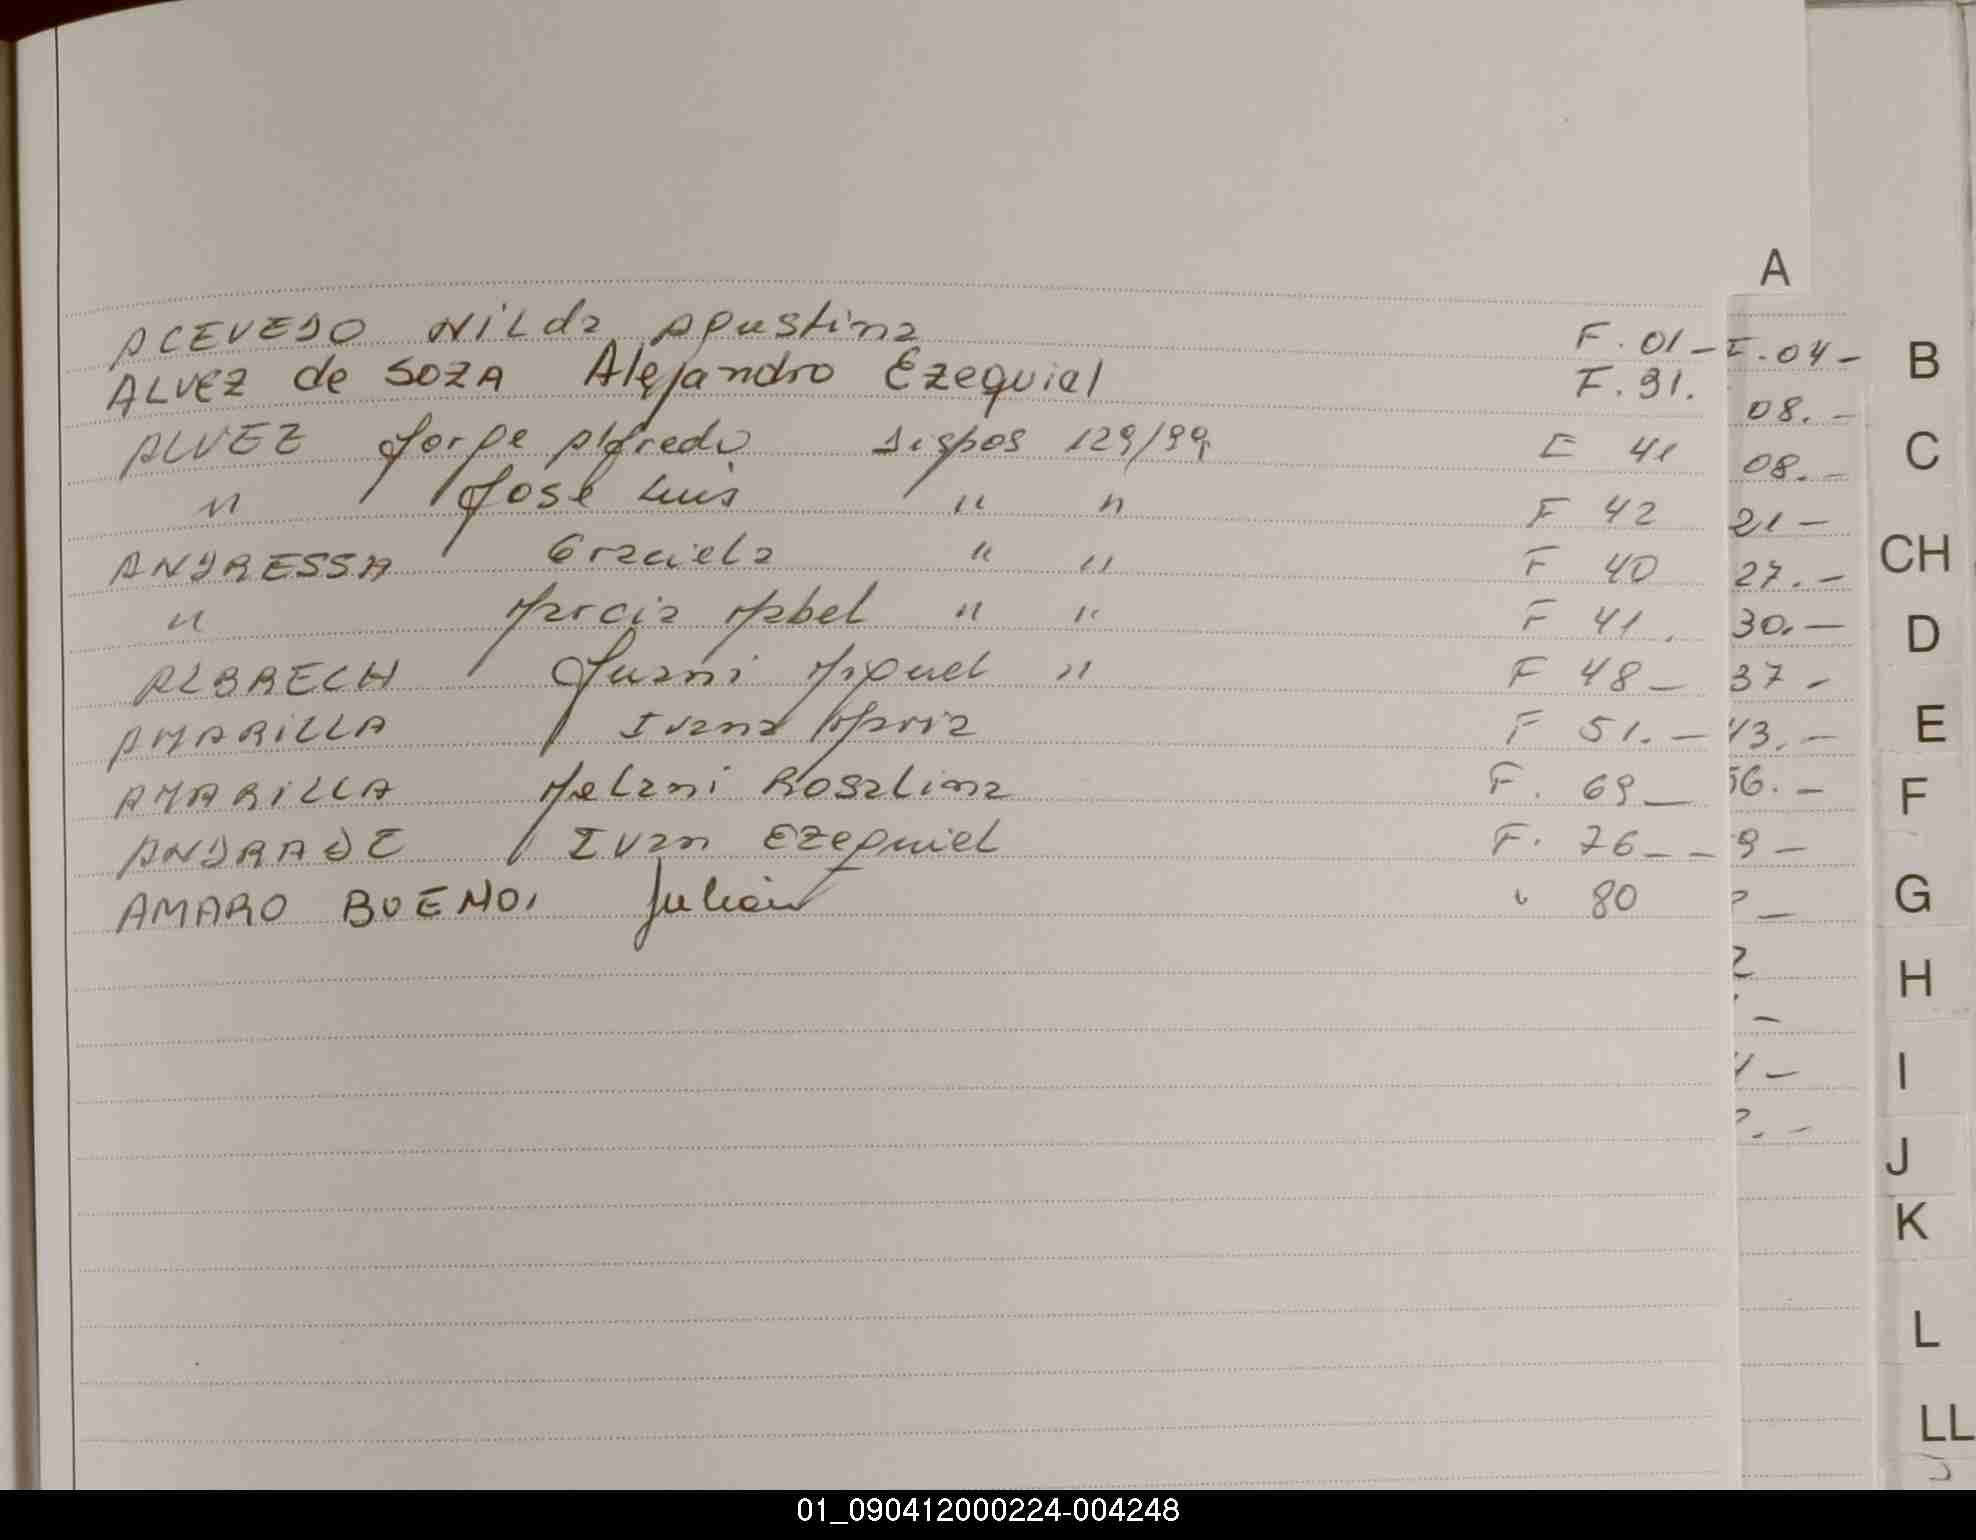 A
ACEVEDO Nilda Agustina F. 01 -
ALVEZ de SOZA Alejandro Ezequiel F. 31.
ALVEZ Jorge Alfredo Dispos 129/99 F 41
" José Luis " " F 42
ANDRESSA Graciela " " F 40
" Marcia Mabel " " F 41.
ALBRECH Juani Miguel " F 48 -
AMARILLA Ivana Maria F 51. -
AMARILLA Melani Rosalina F. 69 -
ANDRADE Ivan Ezequiel F. 76 - -
AMARO BUENO, Julián " 80
F. 04 -
08. -
08. -
21 -
27. -
30. -
37 -
43. -
56. -
9 -
B
C
CH
D
E
F
G
H
I
J
K
L
LL
01_090412000224-004248